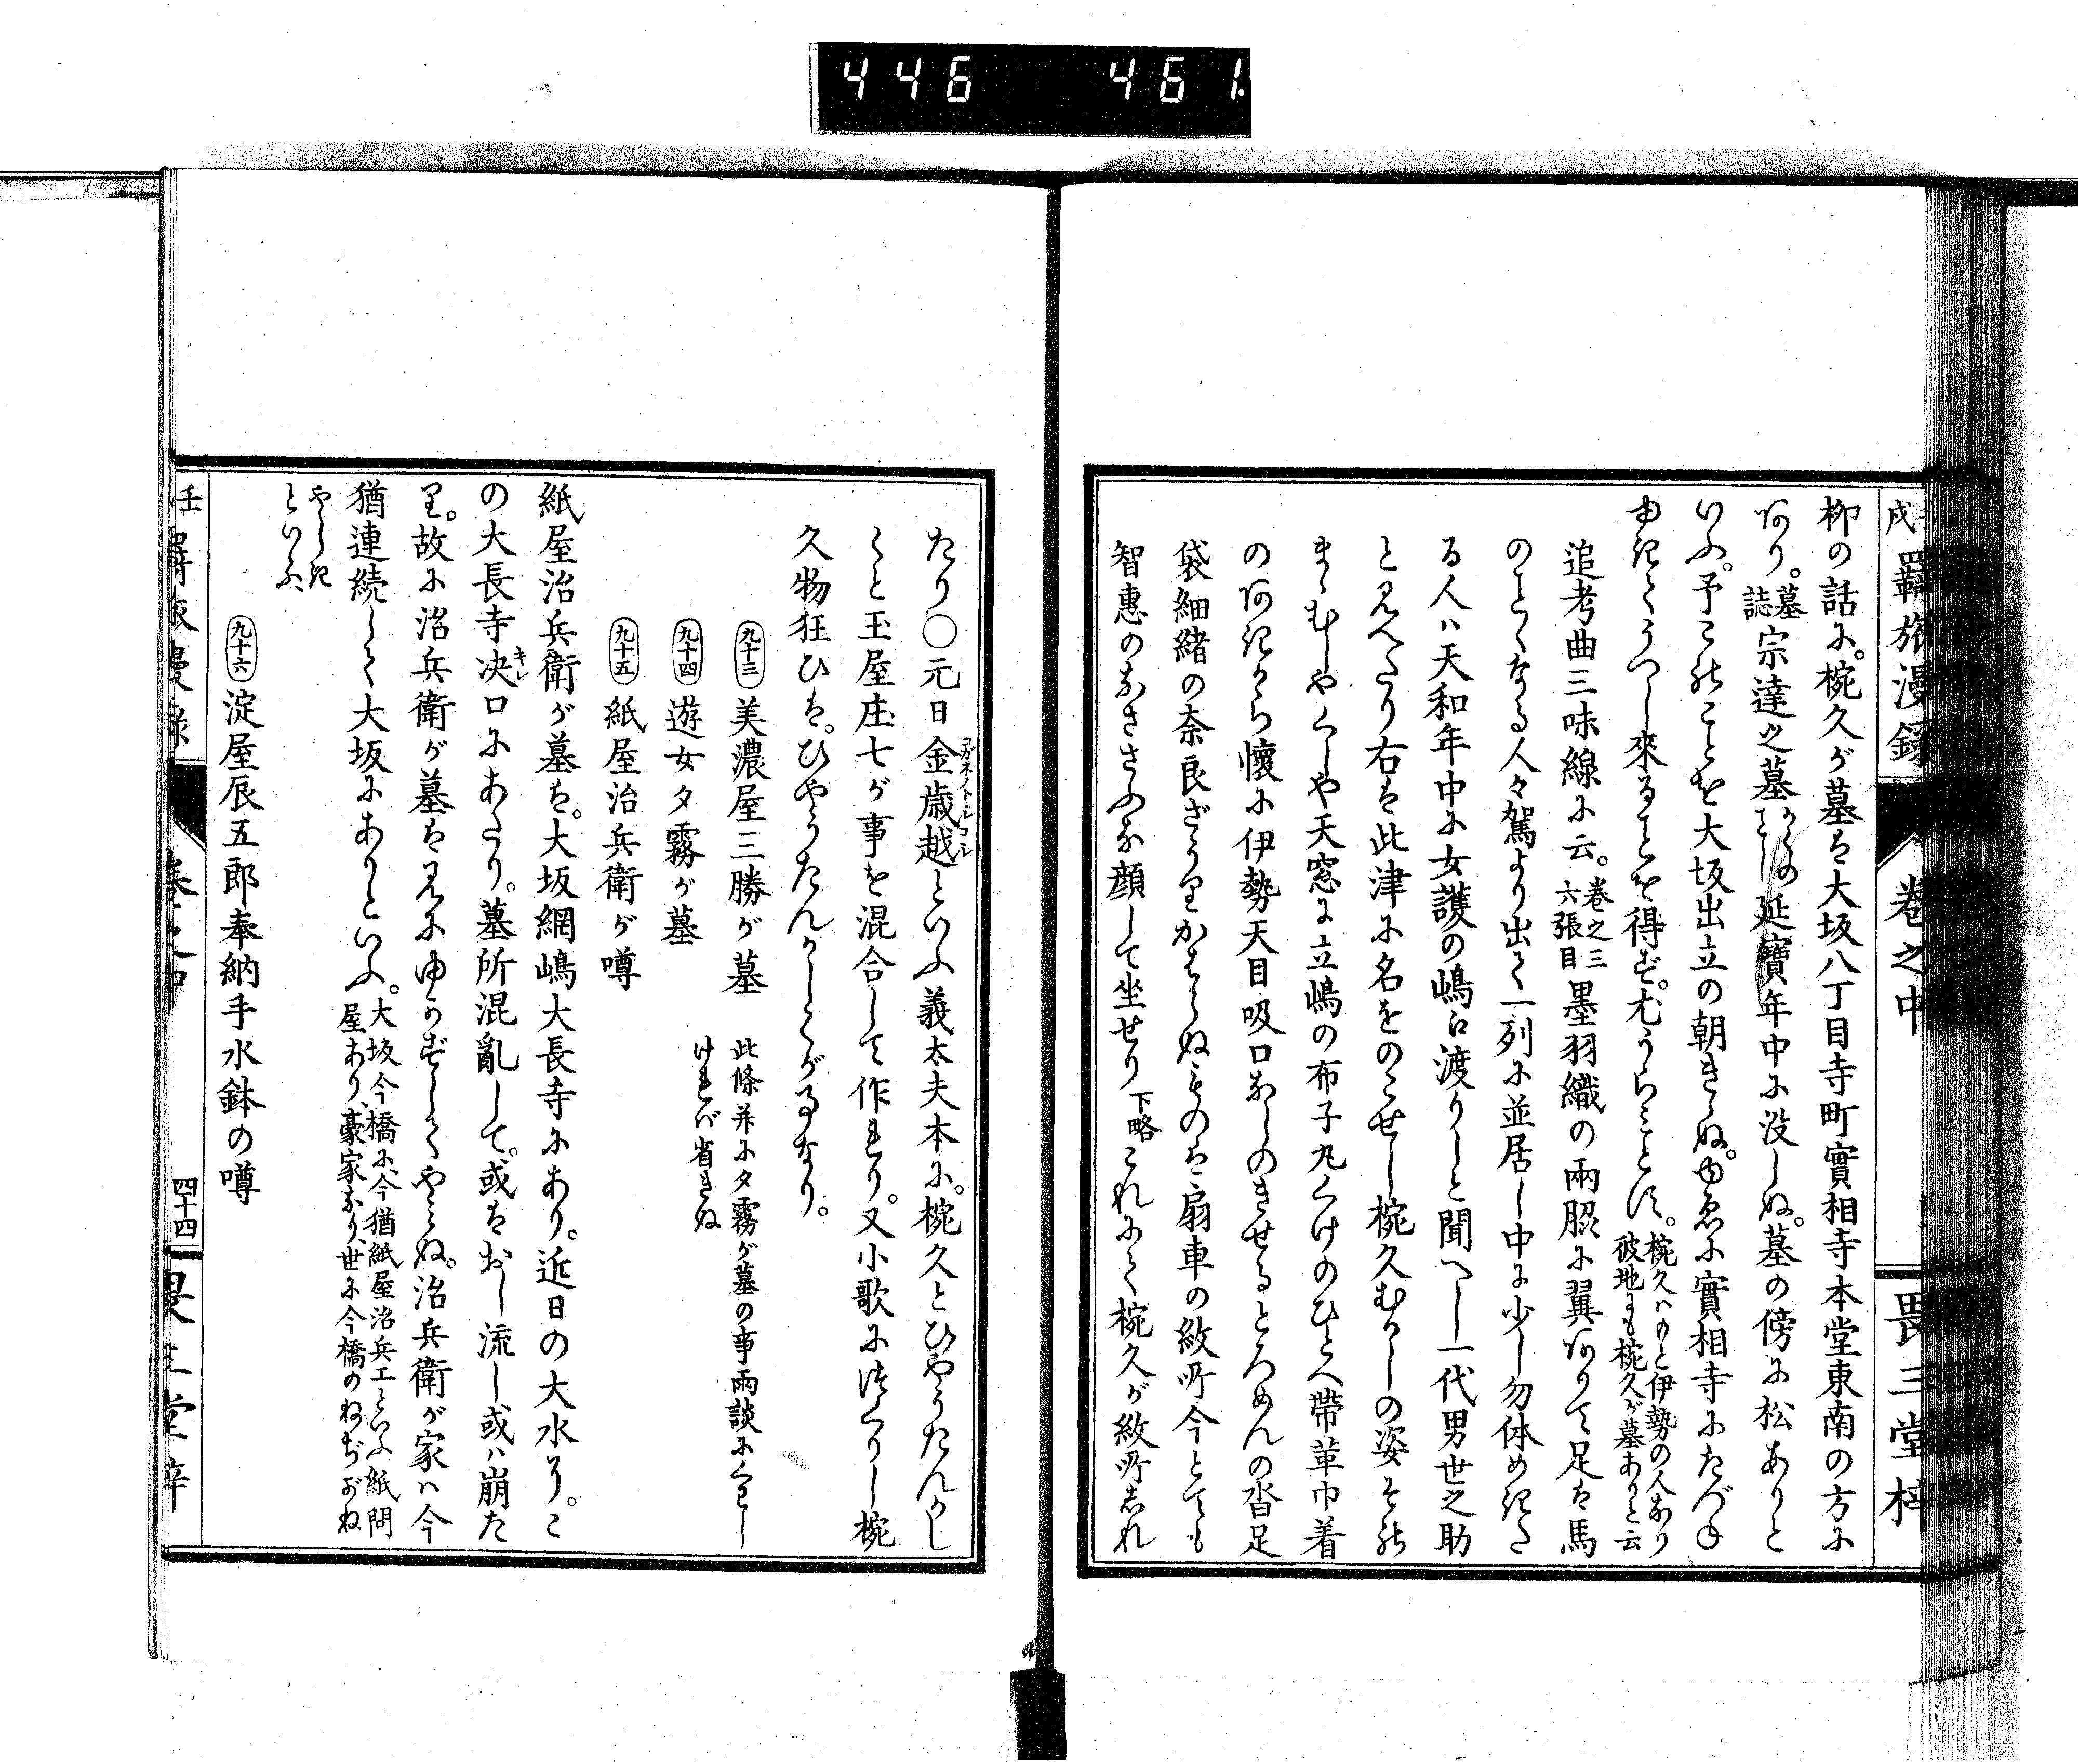 446 461.
戌 羇旅漫録 巻之中 畏三堂梓
柳の話に。椀久が墓は大坂八丁目寺町實相寺本堂東南の方に
あり。墓誌 宗達之墓 延寶年中に没しぬ。墓の傍に松ありと
いふ。予このことを大坂出立の朝きゝぬ。ゆゑに實相寺にたづね
ゆきてうつし來ることを得ず。尤うらみとす。椀久ハもと伊勢の人なり
彼地にも椀久が墓ありと云
追考曲三味線に云。巻之三
六張目 墨羽織の兩脇に翼ありて足は馬
のとくなる人々駕より出て一列に並居し中に少し勿体めきた
る人ハ天和年中に女護の嶋に渡りしと聞へし一代男世之助
と見へたり右は此津に名をのこせし椀久むかしの姿その
まゝむしやくしや天窓に立嶋の布子丸くけのひとへ帶革巾着
のあきから懐に伊勢天目吸口なしのきせるとろめんの沓足
袋細緒の奈良ざうりかはらぬものは扇車の紋所今とても
智惠のなささふな顔して坐せり 下略 これにて椀久が紋所しれ
たり〇元日金歳越といふ義太夫本に。椀久とひやうたんかし
くと玉屋庄七が事を混合して作れり。又小歌につくりし椀
久物狂ひは。ひやうたんかしくが事なり。
コガネノトシコシ
九十三 美濃屋三勝が墓 此條并に夕霧が墓の事兩談にくはし
ければ省きぬ
九十四 遊女夕霧が墓
九十五 紙屋治兵衛が噂
紙屋治兵衛が墓は。大坂網嶋大長寺にあり。近日の大水より。こ
の大長寺决口にあたり。墓所混亂して。或はおし流し或ハ崩た
キレ
り。故に治兵衛が墓は見にゆかずしてやみぬ。治兵衛が家ハ今
猶連続して大坂にありといふ。大坂今橋に、今猶紙屋治兵エといふ紙問
屋あり、豪家なり、世に今橋のねぢがね
やしき
といふ、
九十六 淀屋辰五郎奉納手水鉢の噂
壬 羇旅漫録 巻之中 四十四 畏三堂梓